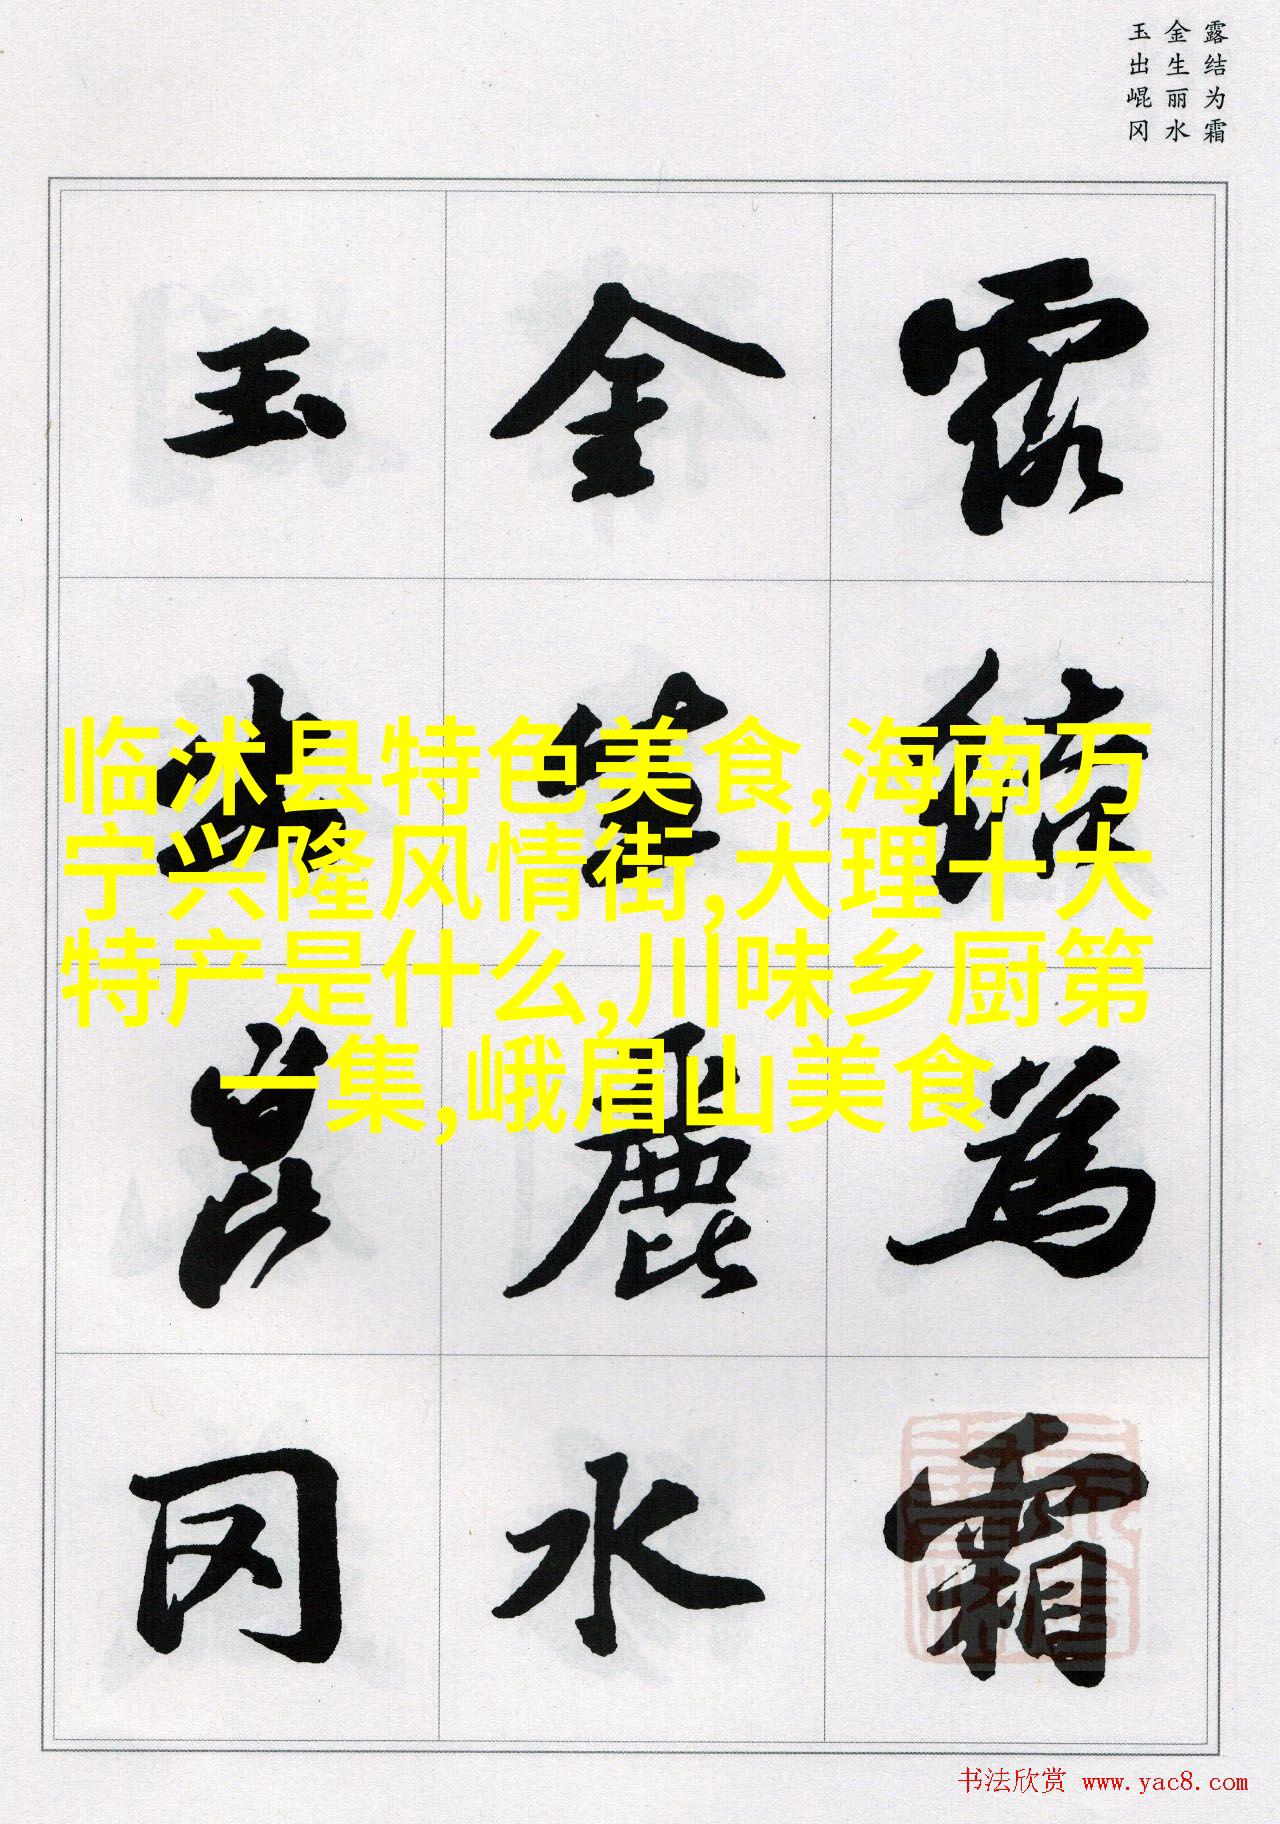 露结为霜
金生丽水
玉出崐冈
露結為霜
金生麗水
玉出崑冈
临沭县特色美食,海南万
宁兴隆风情街,大理十大
特产是什么,川味乡厨第
一集,峨眉山美食
书法欣赏 www.yac8.com